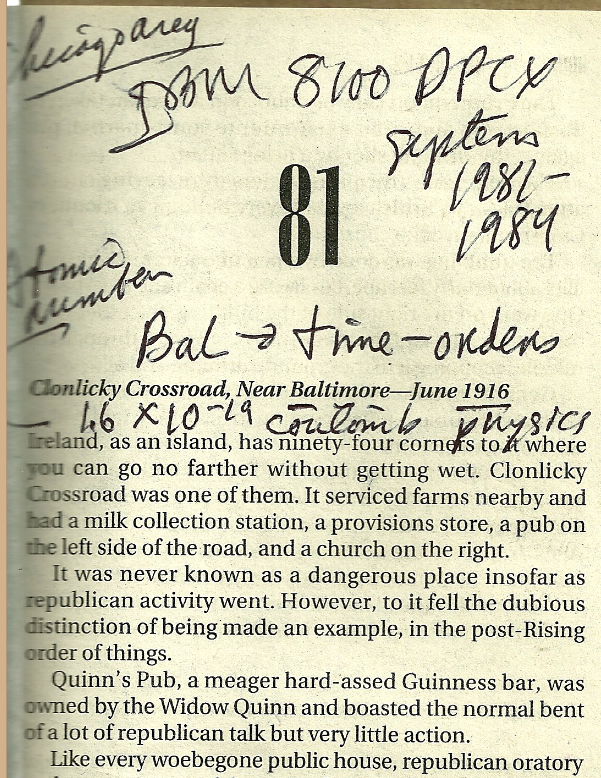 IBM 8100 DPCX
systems
1981-
1984
81
atomic
number
Bal → time-orders
Clonlicky Crossroad, Near Baltimore—June 1916
1.6 X 10-19 coulomb physics
Ireland, as an island, has ninety-four corners to it where
you can go no farther without getting wet. Clonlicky
Crossroad was one of them. It serviced farms nearby and
had a milk collection station, a provisions store, a pub on
the left side of the road, and a church on the right.
It was never known as a dangerous place insofar as
republican activity went. However, to it fell the dubious
distinction of being made an example, in the post-Rising
order of things.
Quinn's Pub, a meager hard-assed Guinness bar, was
owned by the Widow Quinn and boasted the normal bent
of a lot of republican talk but very little action.
Like every woebegone public house, republican oratory